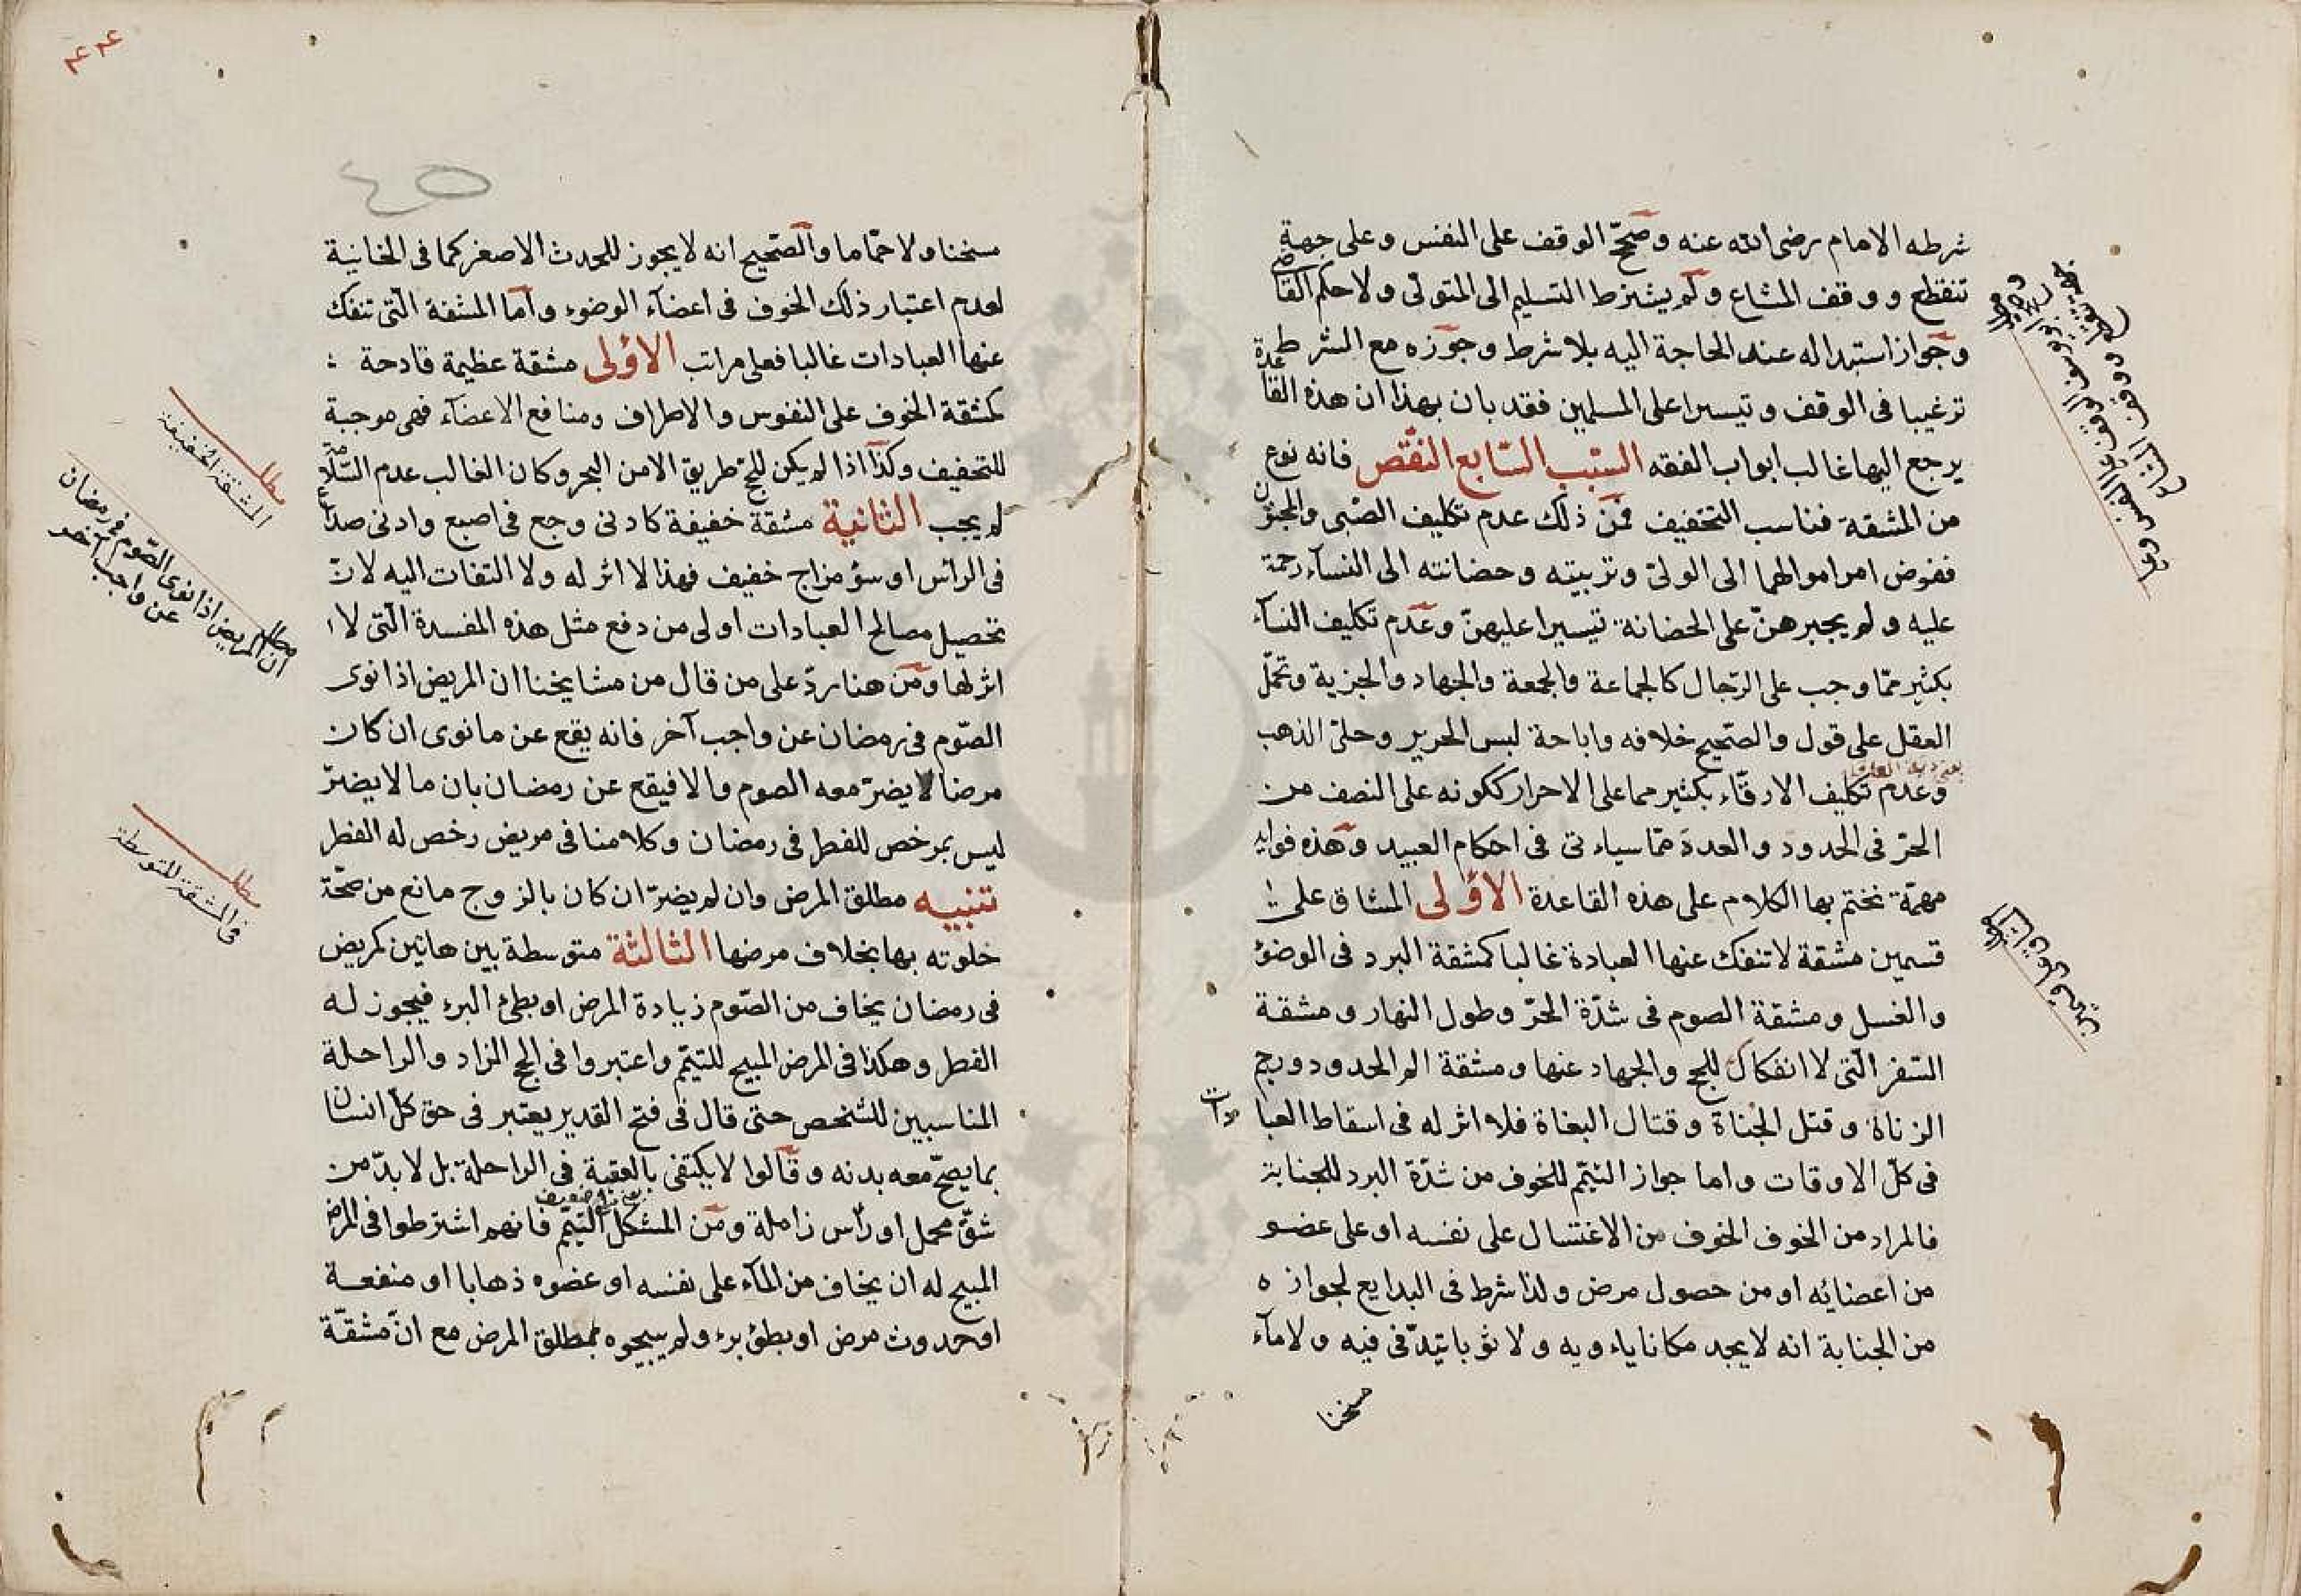 شرطه الامام رضى الله عنه وصحّ الوقف على النفس وعلى جهة
تنقطع ووقف المشاع ولم يشترط التسليم الى المتولى ولا حكم القاضى
وجواز استبداله عند الحاجة اليه بلا شرط وجوّزه مع الشرط
ترغيبا فى الوقف وتيسيرا على المسلمين فقد بان بهذا ان هذه القاعدة
يرجع اليها غالب ابواب الفقه السّبب السّابع النّقص فانه نوع
من المشقة فناسب التخفيف فمن ذلك عدم تكليف الصّبى والمجنون
ففوض امر اموالهما الى الولىّ وتربيته وحضانته الى النسآء رحمة
عليه ولم يجبرهنّ على الحضانة تيسيرا عليهنّ وعدم تكليف النسآء
بكثير ممّا وجب على الرّجال كالجماعة والجمعة والجهاد والجزية وتحمّل
العقل على قول والصّحيح خلافه واباحة لبس الحرير وحلىّ الذهب
وعدم تكليف الارقّاء بكثير مما على الاحرار ككونه على النصف من
الحرّ فى الحدود والعدة ممّا سياءتى فى احكام العبيد وهذه فوايد
مهمّة نختم بها الكلام على هذه القاعدة الاولى المشاق على
قسمين مشقة لا تنفك عنها العبادة غالبا كمشقة البرد فى الوضوء
والغسل ومشقة الصوم فى شدّة الحرّ وطول النهار ومشقة
السّفر الّتى لا انفكاك للحج والجهاد عنها ومشقة الم الحدود ورجم
الزناة وقتل الجناة وقتال البغاة فلا اثر له فى اسقاط العبادات
فى كلّ الاوقات واما جواز التيمّم للخوف من شدّة البرد للجنابة
فالمراد من الخوف الخوف من الاغتسال على نفسه او على عضو
من اعضائه او من حصول مرض ولذا شرط فى البدايع لجوازه
من الجنابة انه لا يجد مكانا ياءويه ولا ثوبا يتدفّى فيه ولا مآء
سخنا
المشاق على قسمين
سخنا ولا حمّاما والصّحيح انه لا يجوز للحدث الاصغر كما فى الخانية
لعدم اعتبار ذلك الخوف فى اعضآء الوضوء وأما المشقة الّتى تنفك
عنها العبادات غالبا فعلى مراتب الاولى مشقة عظيمة فادحة
كمشقة الخوف على النفوس والاطراف ومنافع الاعضآء فهى موجبة
للتخفيف وكذا اذا لم يكن للحج طريق الا من البحر وكان الغالب عدم السّلامة
لم يجب الثانية مشقة خفيفة كادنى وجع فى اصبع وادنى صداع
فى الرأس او سؤ مزاج خفيف فهذا لا اثر له ولا التفات اليه لانّ
تحصيل مصالح العبادات اولى من دفع مثل هذه المفسدة الّتى لا
اثر لها ومن هنا ردّ على من قال من مشايخنا ان المريض اذا نوى
الصّوم فى رمضان عن واجب آخر فانه يقع عن ما نوى ان كان
مرضا لا يضرّ معه الصوم والا فيقع عن رمضان بان ما لا يضرّ
ليس بمرخص للفطر فى رمضان وكلامنا فى مريض رخص له الفطر
تنبيه مطلق المرض وان لم يضرّ ان كان بالزوج مانع من صحّة
خلوته بها بخلاف مرضها الثالثة متوسطة بين هاتين كمريض
فى رمضان يخاف من الصّوم زيادة المرض او بطئ البرء فيجوز له
الفطر وهكذا فى المرض المبيح للتيمّم واعتبروا فى الحج الزاد والراحلة
المناسبين للشخص حتى قال فى فتح القدير يعتبر فى حق كلّ انسان
بما يصحّ معه بدنه وقالوا لا يكتفى بالعقبة فى الراحلة بل لا بدّ من
شقّ محمل او رأس زاملة ومن المشكل التيمّم فانهم اشترطوا فى المرض
المبيح له ان يخاف من المآء على نفسه او عضوه ذهابا او منفعة
او حدوث مرض او بطؤ برء ولم يبيحوه بمطلق المرض مع انّ مشقّة
مطلب
المشقة الخفيفة
مطلب
ان المريض اذا نوى الصّوم فى رمضان
عن واجب آخر
مطلب
فى المشقة المتوسطة
٤٤
٤٥